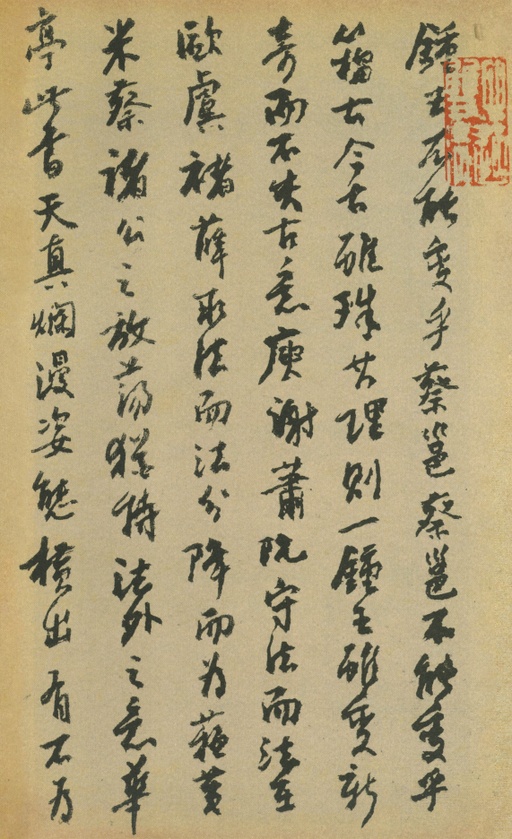 鍾王不能變乎蔡邕蔡邕不能變乎
籀古今古雖殊其理則一鍾王雖變新
奇而不失古意庾謝蕭阮守法而法在
歐虞褚薛取法而法分降而為蘇黄
米蔡諸公之放蕩猶持法外之意華
亭此書天真爛漫姿態橫出有不為